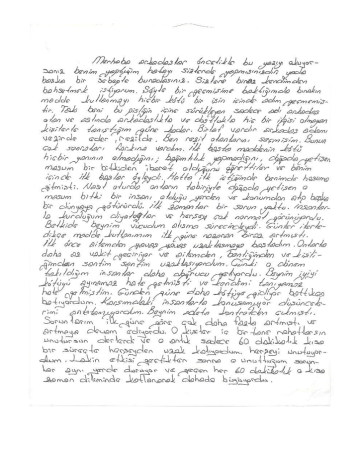 Merhaba arkadaşlar öncelikle bu yazıyı okuyor-
sanız benim yaptığım hatayı sizlerde yapmışsınızdır yada
başka bir sebepte buradasınız. Sizlere biraz kendimden
bahsetmek istiyorum. Şöyle bir geçmişime baktığımda bırakın
madde kullanmayı hiçbir kötü bir işin içinde adım geçmemiş-
tir. Taki beni bu pisliğin içine sürükleyen sadece adı arkadaş
olan ve aslında arkadaşlıkla ve dostlukla hiç bir ilgisi olmayan
kişilerle tanıştığım güne kadar. Evlat vardır arkadaş adamı
vezirde eder, rezilde. Ben rezil olanlarını seçmişim. Bunun
çok sonraları farkına vardım. İlk başta maddenin kötü
hiçbir yanının olmadığını, bağımlılık yapmadığını, doğada yetişen
masum bir bitkiden ibaret olduğunu öğrettiler ve benim
içinde ilk başlar öyleydi. Hatta ilk içtiğimde benimde hoşuma
gitmişti. Nasıl olurda onların tabiriyle doğada yetişen o
masum bitki bir insanı olduğu yerden ve konumdan alıp başka
bir dünyaya götürürdü. İlk zamanlar bir sorun yoktu. İnsanlar-
la kurduğum diyaloglar ve herşey çok normal görünüyordu.
Betkide beynim vücudum olsmo sürecindeydi. Günler ilerle-
dikçe madde kullanımım ilk güne nazaran biraz artmıştı.
İlk önce ailemden yavaş yavaş uzaklaşmaya başladım. Onlarla
daha az vakit geçiriyor ve ailemden, benliğimden ve kişili-
ğimden santim santim uzaklaşıyordum. Çünkü o dönem
takıldığım insanlar daha doğrucu geliyordu. Beynim iyiyi
kötüyü ayıramaz hale gelmişti ve kendimi tanıyamaz
hale gelmiştim. Günden güne daha kötüye gidiyor battıkça
batıyordum. Karşımdaki insanlarla konuşamıyor düşüncele-
rimi anlatamıyordum. Beynim adeta kontrolden çıkmıştı.
Sorunlarım ilk güne göre çok daha fazla artmıştı ve
artmaya devam ediyordu. O kişiler iç bir tane rahatlarsın
unutursun derlerdi ve o anlık sadece 60 dakikalık kısa
bir süreçte herşeyden uzak kalıyordum, herşeyi unutuyor-
dum. Lakin etkisi geçtikten sonra o unuttuğum sorun-
lar aynı yerde duruyor ve geçen her 60 dakikalık o kısa
zaman diliminde katlanarak dahada büyüyordu.